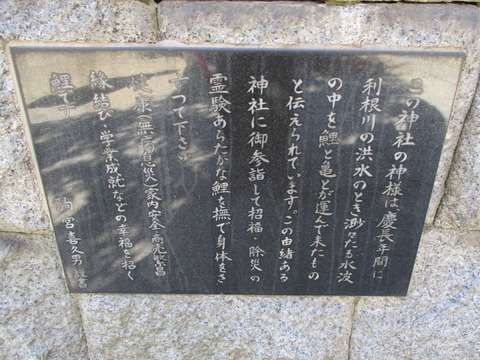 この神社の神様は、慶長年間に
利根川の洪水のとき渺々たる水波
の中を鯉と亀とが運んで来たもの
と伝えられています。この由緒ある
神社に御参詣して招福・除災の
霊験あらたかな鯉を撫で身体をさ
すって下さい
健康(無病息災)家内安全・商売繁昌
縁結び・学業成就などの幸福を招く
鯉です
宮喜久男